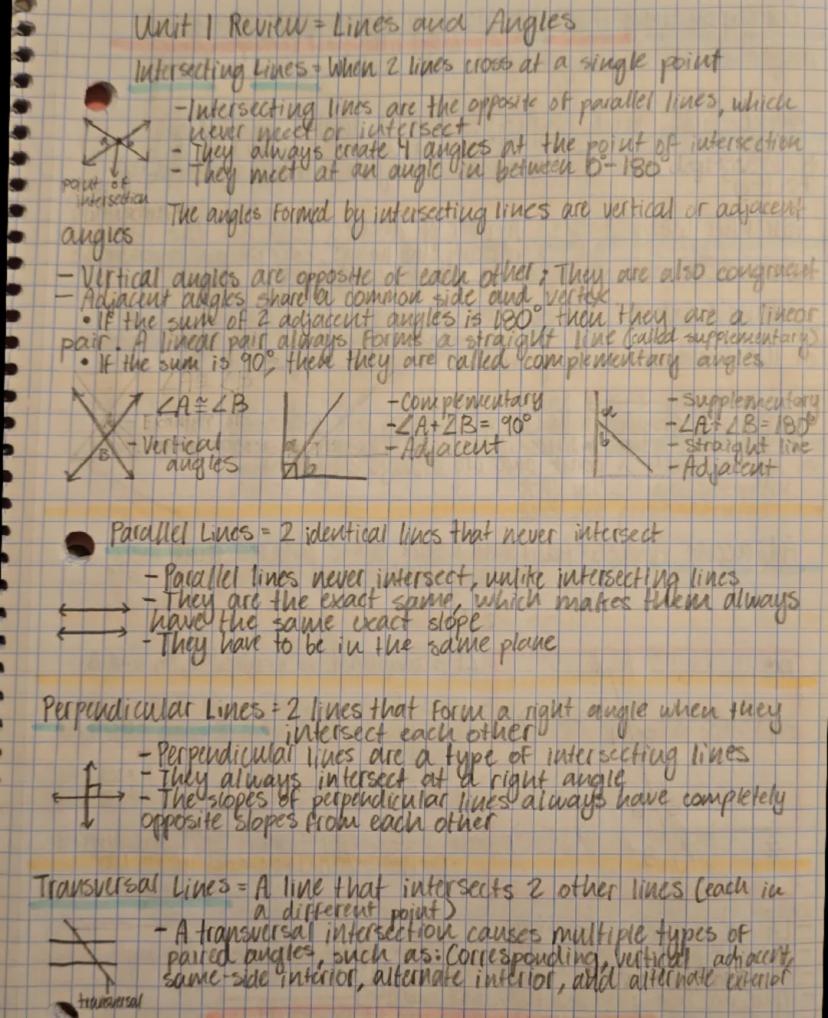 Unit 1 Review = Lines and Angles
Intersecting Lines = When 2 lines cross at a single point
- Intersecting lines are the opposite of parallel lines, which
never meet or intersect
- They always create 4 angles at the point of intersection
- They meet at an angle in between 0°-180°
point of
intersection
The angles formed by intersecting lines are vertical or adjacent
angles
- Vertical angles are opposite of each other; They are also congruent
- Adjacent angles share a common side and vertex
• If the sum of 2 adjacent angles is 180° then they are a linear
pair. A linear pair always forms a straight line (called supplementary)
• If the sum is 90°, then they are called complementary angles
∠A ≅ ∠B
- Vertical
angles
A
B
a
b
- Complementary
- ∠A + ∠B = 90°
- Adjacent
a
b
- Supplementary
- ∠A + ∠B = 180°
- Straight line
- Adjacent
Parallel Lines = 2 identical lines that never intersect
- Parallel lines never intersect, unlike intersecting lines
- They are the exact same, which makes them always
have the same exact slope
- They have to be in the same plane
Perpendicular Lines = 2 lines that form a right angle when they
intersect each other
- Perpendicular lines are a type of intersecting lines
- They always intersect at a right angle
- The slopes of perpendicular lines always have completely
opposite slopes from each other
Transversal Lines = A line that intersects 2 other lines (each in
a different point)
- A transversal intersection causes multiple types of
paired angles, such as: Corresponding, vertical, adjacent,
same-side interior, alternate interior, and alternate exterior
transversal